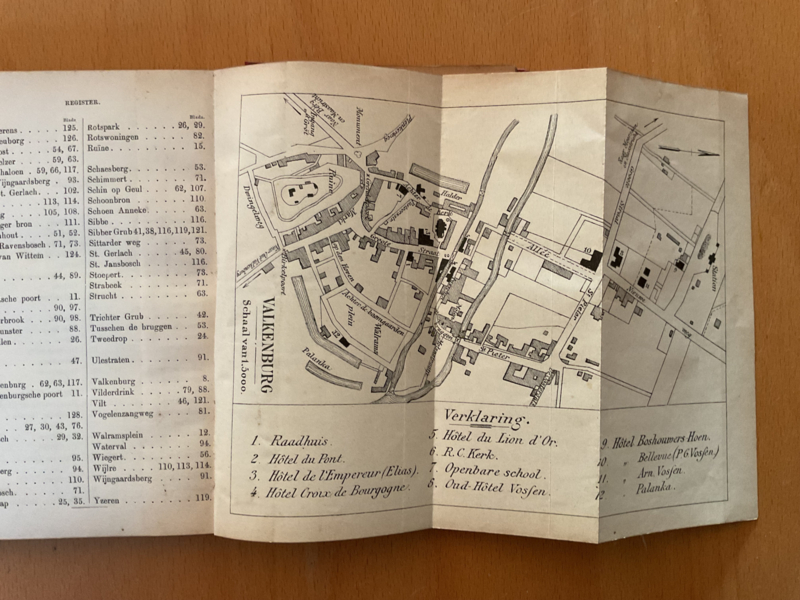 REGISTER.
Bladz.
125.
126.
54, 67.
59, 63.
59, 66, 117.
Wijngaardsberg . 93.
St. Gerlach . . 102.
113, 114.
105, 108.
111.
51, 52.
Ravensbosch . 71, 73.
van Wittem . . 124.
44, 89.
11.
90, 97.
90, 98.
88.
26.
47.
62, 63, 117.
11.
128.
27, 30, 43, 76.
29, 32.
95.
94.
110.
71.
25, 35.
Bladz.
Rotspark . . . . . . . 26, 29.
Rotswoningen . . . . . 82.
Reine . . . . . . . 15.
Schaesberg . . . . . . 53.
Schimmert . . . . . . 71.
Schin op Geul . . . 62, 107.
Schoonbron . . . . . . 110.
Schoen Anneke . . . . . 63.
Sibbe . . . . . . . 116.
Sibber Grub 41, 38, 116, 119, 121.
Sittarder weg . . . . . 73.
St. Gerlach . . . . . 45, 80.
St. Jansbosch . . . . . 116.
Stoepert . . . . . . 73.
Strabeek . . . . . . 71.
Strucht . . . . . . 63.
Trichter Grub . . . . . 42.
Tusschen de bruggen . . . 53.
Tweedrop . . . . . . 24.
Ulestraten . . . . . . 91.
Valkenburg . . . . . . 8.
Vilderdrink . . . . . 79, 88.
Vilt . . . . . . . 46, 121.
Vogelenzangweg . . . . . 81.
Walramsplein . . . . . 12.
Waterval . . . . . . 94.
Wiegert . . . . . . 56.
Wijlre . . . . 110, 113, 114.
Wijngaardsberg . . . . 91.
Yzeren . . . . . . . 119.
Monument
Plenkertweg
Ruine
Dwingelweg
Halder
Kerk
Straat
Allée
10
Station
Walrams
plein
12
Palanka
St Pieter
VALKENBURG
Schaal van 1.5000.
Verklaring.
1. Raadhuis.
2. Hôtel du Pont.
3. Hôtel de l'Empereur (Elias).
4. Hôtel Croix de Bourgogne.
5. Hôtel du Lion d'Or.
6. R.C. Kerk.
7. Openbare school.
8. Oud-Hôtel Vossen.
9. Hôtel Boshouwers Hoen.
10. " Bellevue (P.G. Vossen)
11. " Arn. Vossen.
12. " Palanka.